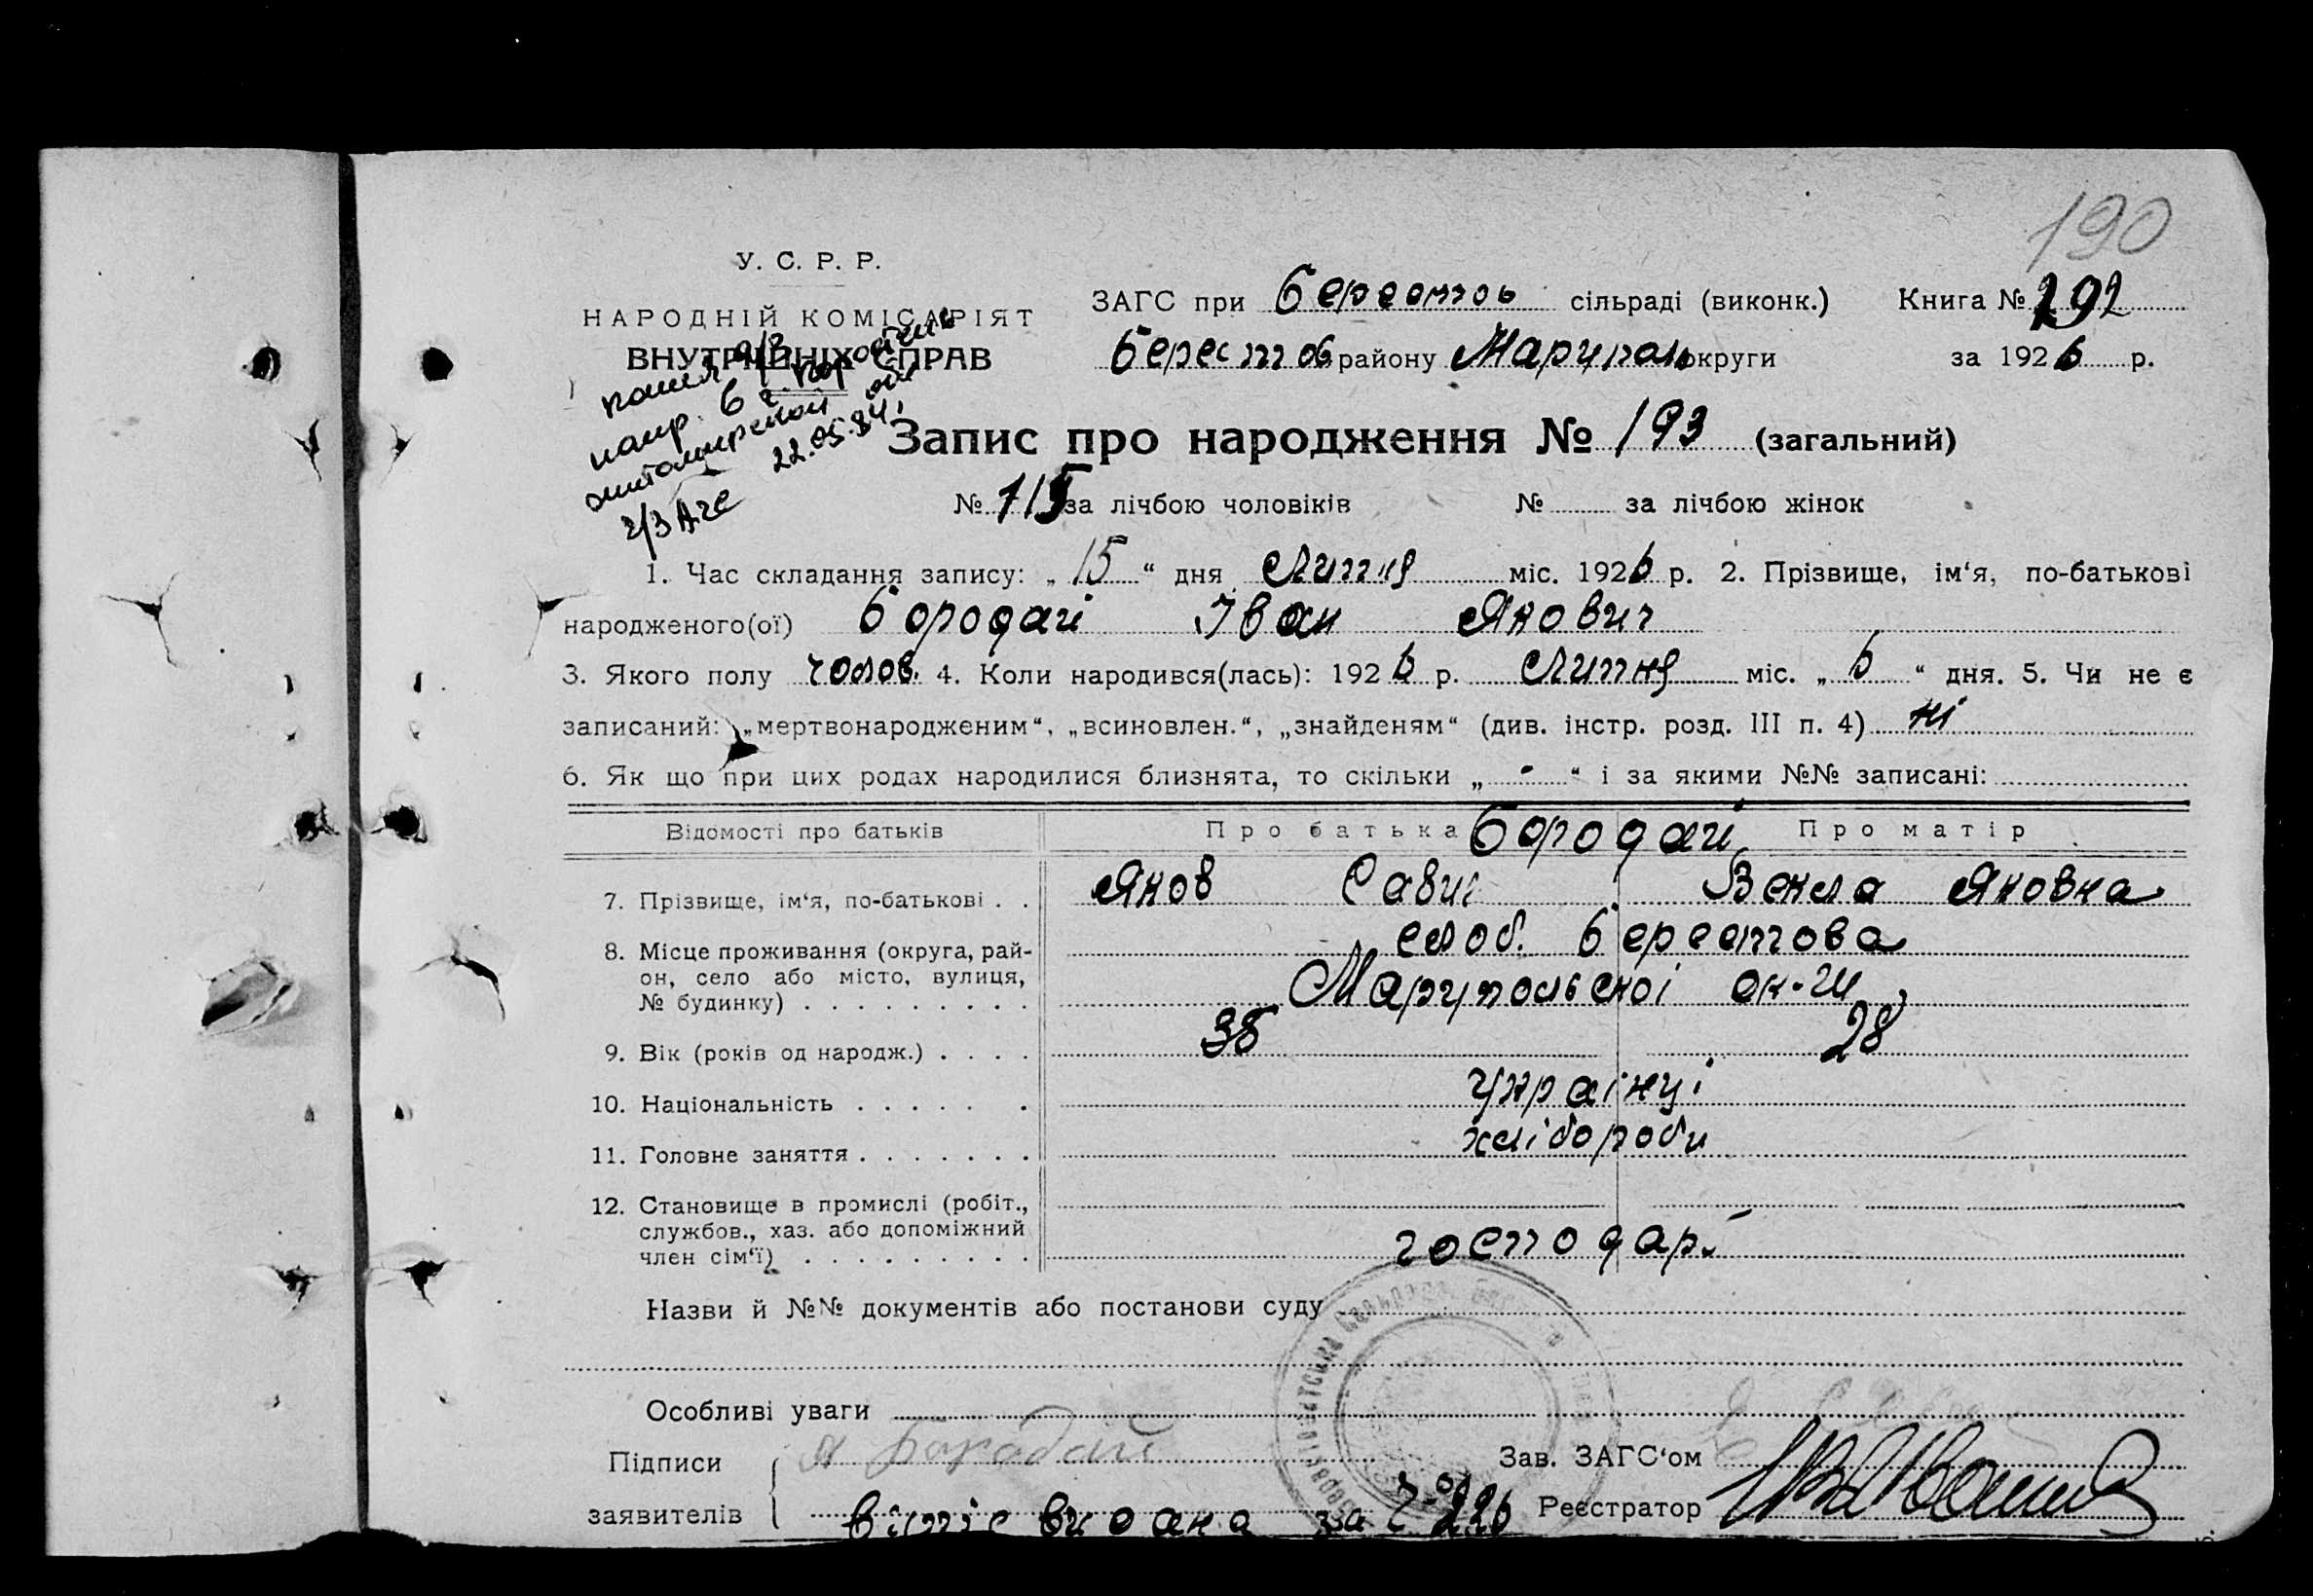 190
У. С. Р. Р.
НАРОДНІЙ КОМІСАРІЯТ
ВНУТРІШНІХ СПРАВ
ЗАГС при Берестов сільраді (виконк.) Книга № 292
Берестов району Маруполь округи за 1926 р.
22.05.84.
Запис про народження № 193 (загальний)
№ 115 за лічбою чоловіків № за лічбою жінок
1. Час складання запису: „15“ дня Липня міс. 1926 р. 2. Прізвище, ім‘я, по-батькові
народженого(ої) Бородай Іван Янович
3. Якого полу чолов. 4. Коли народився(лась): 1926 р. Липня міс. „6“ дня. 5. Чи не є
записаний: „мертвонародженим“, „всиновлен.“, „знайденям“ (див. інстр. розд. III п. 4) ні
6. Як що при цих родах народилися близнята, то скільки „-“ і за якими №№ записані:
Відомості про батьків Про батька Бородай Про матір
7. Прізвище, ім‘я, по-батькові . . Янов Савич Векла Яновна
8. Місце проживання (округа, рай-
он, село або місто, вулиця,
№ будинку) . . . . . . . . .
слоб. Берестова
Марупольської ок-ги
9. Вік (років од народж.) . . . . 36 28
10. Національність . . . . . . українці
11. Головне заняття . . . . . . . хлібороби
12. Становище в промислі (робіт.,
службов., хаз. або допоміжний
член сім‘ї) . . . . . . . . .
господар.
Назви й №№ документів або постанови суду
Особливі уваги
Підписи
заявителів
Я Бородай
Зав. ЗАГС‘ом
витяг видана за № 226 Реєстратор